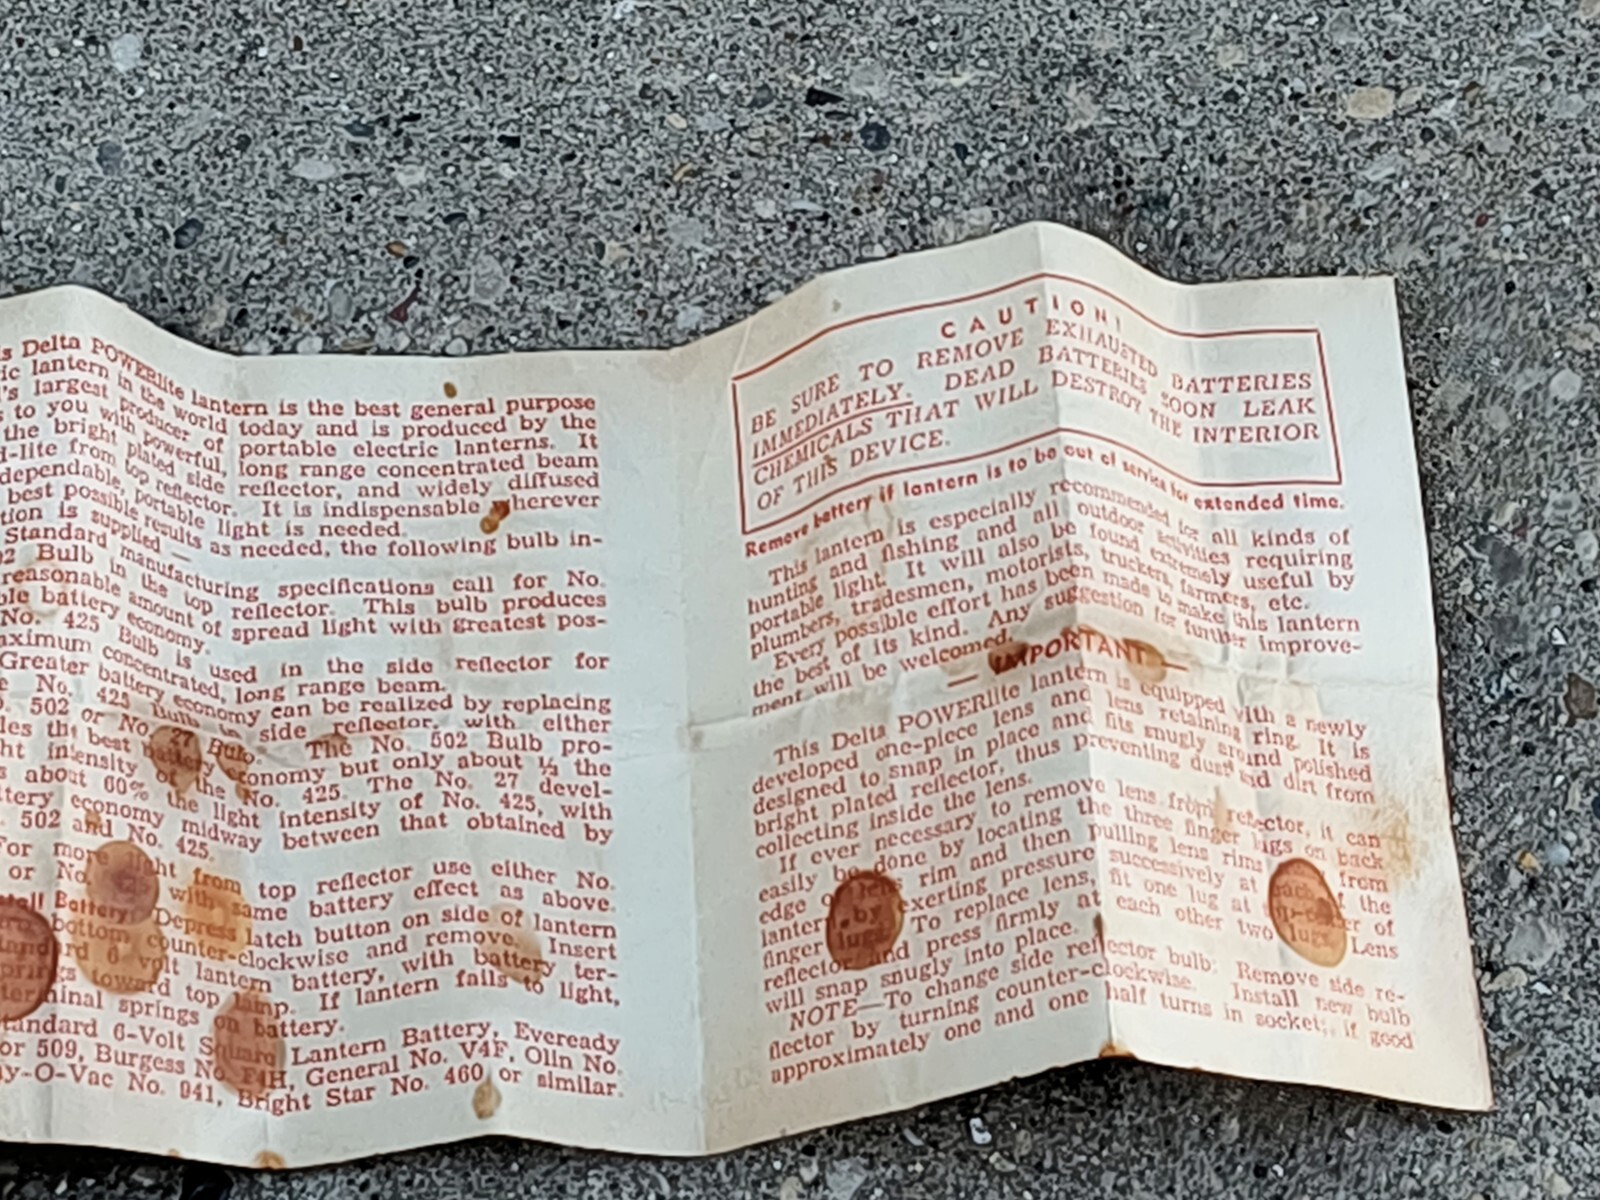 s Delta POWERlite lantern is the best general purpose
ic lantern in the world today and is produced by the
's largest producer of portable electric lanterns. It
s to you with powerful, long range concentrated beam
the bright plated side reflector, and widely diffused
d-lite from top reflector. It is indispensable wherever
dependable, portable light is needed.
best possible results as needed, the following bulb in-
tion is supplied —
Standard manufacturing specifications call for No.
02 Bulb in the top reflector. This bulb produces
reasonable amount of spread light with greatest pos-
ble battery economy.
No. 425 Bulb is used in the side reflector for
aximum concentrated, long range beam.
Greater battery economy can be realized by replacing
e No. 425 Bulb in side reflector, with either
o. 502 or No. 27 Bulb. The No. 502 Bulb pro-
les the best battery economy but only about ⅓ the
ht intensity of the No. 425. The No. 27 devel-
s about 60% the light intensity of No. 425, with
ttery economy midway between that obtained by
502 and No. 425.
For more light from top reflector use either No.
or No. 425 with same battery effect as above.
tall Battery: Depress latch button on side of lantern
bottom counter-clockwise and remove. Insert
tandard 6 volt lantern battery, with battery ter-
springs toward top lamp. If lantern fails to light,
terminal springs on battery.
tandard 6-Volt Square Lantern Battery, Eveready
or 509, Burgess No. F4H, General No. V4F, Olin No.
ay-O-Vac No. 941, Bright Star No. 460 or similar.
CAUTION!
BE SURE TO REMOVE EXHAUSTED BATTERIES
IMMEDIATELY. DEAD BATTERIES SOON LEAK
CHEMICALS THAT WILL DESTROY THE INTERIOR
OF THIS DEVICE.
Remove battery if lantern is to be out of service for extended time.
This lantern is especially recommended for all kinds of
hunting and fishing and all outdoor activities requiring
portable light. It will also be found extremely useful by
plumbers, tradesmen, motorists, truckers, farmers, etc.
Every possible effort has been made to make this lantern
the best of its kind. Any suggestion for further improve-
ment will be welcomed.
— IMPORTANT —
This Delta POWERlite lantern is equipped with a newly
developed one-piece lens and lens retaining ring. It is
designed to snap in place and fits snugly around polished
bright plated reflector, thus preventing dust and dirt from
collecting inside the lens.
If ever necessary to remove lens from reflector, it can
easily be done by locating the three finger lugs on back
edge of lens rim and then pulling lens rim from
lantern by exerting pressure successively at each of the
finger lugs. To replace lens, fit one lug at in-center of
reflector and press firmly at each other two lugs. Lens
will snap snugly into place.
NOTE—To change side reflector bulb: Remove side re-
flector by turning counter-clockwise. Install new bulb
approximately one and one half turns in socket; if good